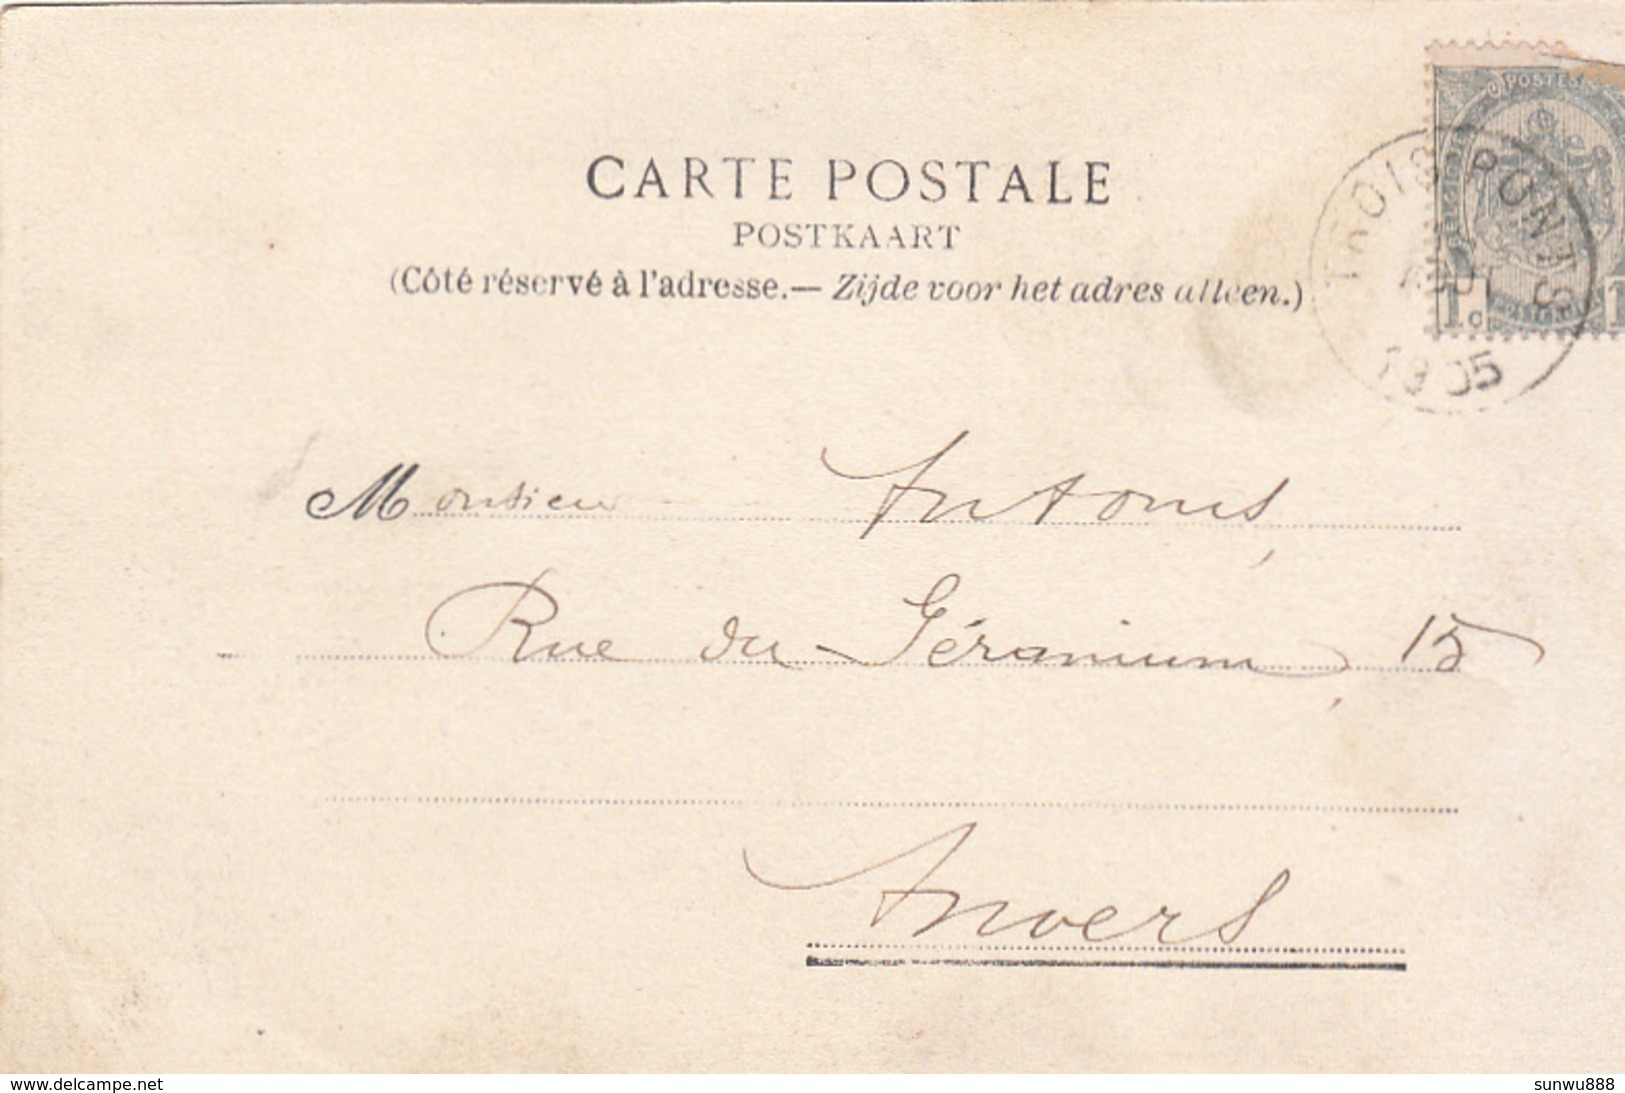 CARTE POSTALE
POSTKAART
(Côté réservé à l'adresse.— Zijde voor het adres alleen.)
POSTES
1 c 1
TROIS PONTS
AOUT
1905
Monsieur Antonis,
Rue du Géranium, 15
Anvers
www.delcampe.net
sunwu888